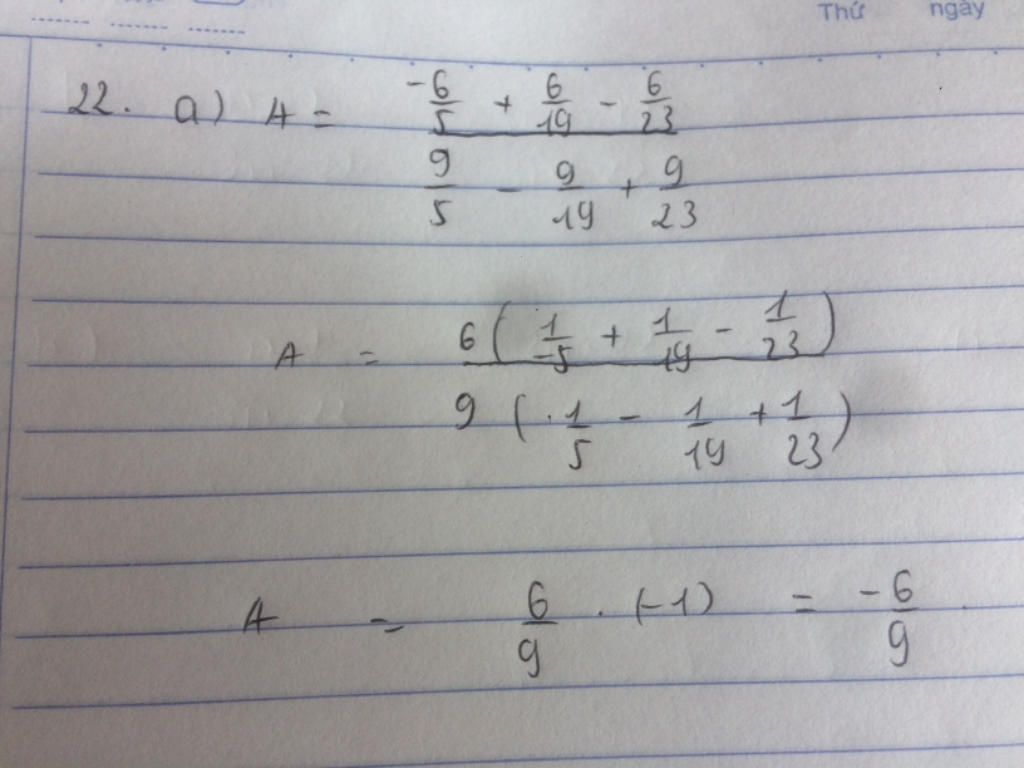 Thứ ngày
22. a) A = \frac{\frac{-6}{5} + \frac{6}{19} - \frac{6}{23}}{\frac{9}{5} - \frac{9}{19} + \frac{9}{23}}
A = \frac{6(\frac{1}{-5} + \frac{1}{19} - \frac{1}{23})}{9(\frac{1}{5} - \frac{1}{19} + \frac{1}{23})}
A = \frac{6}{9} . (-1) = \frac{-6}{9}.